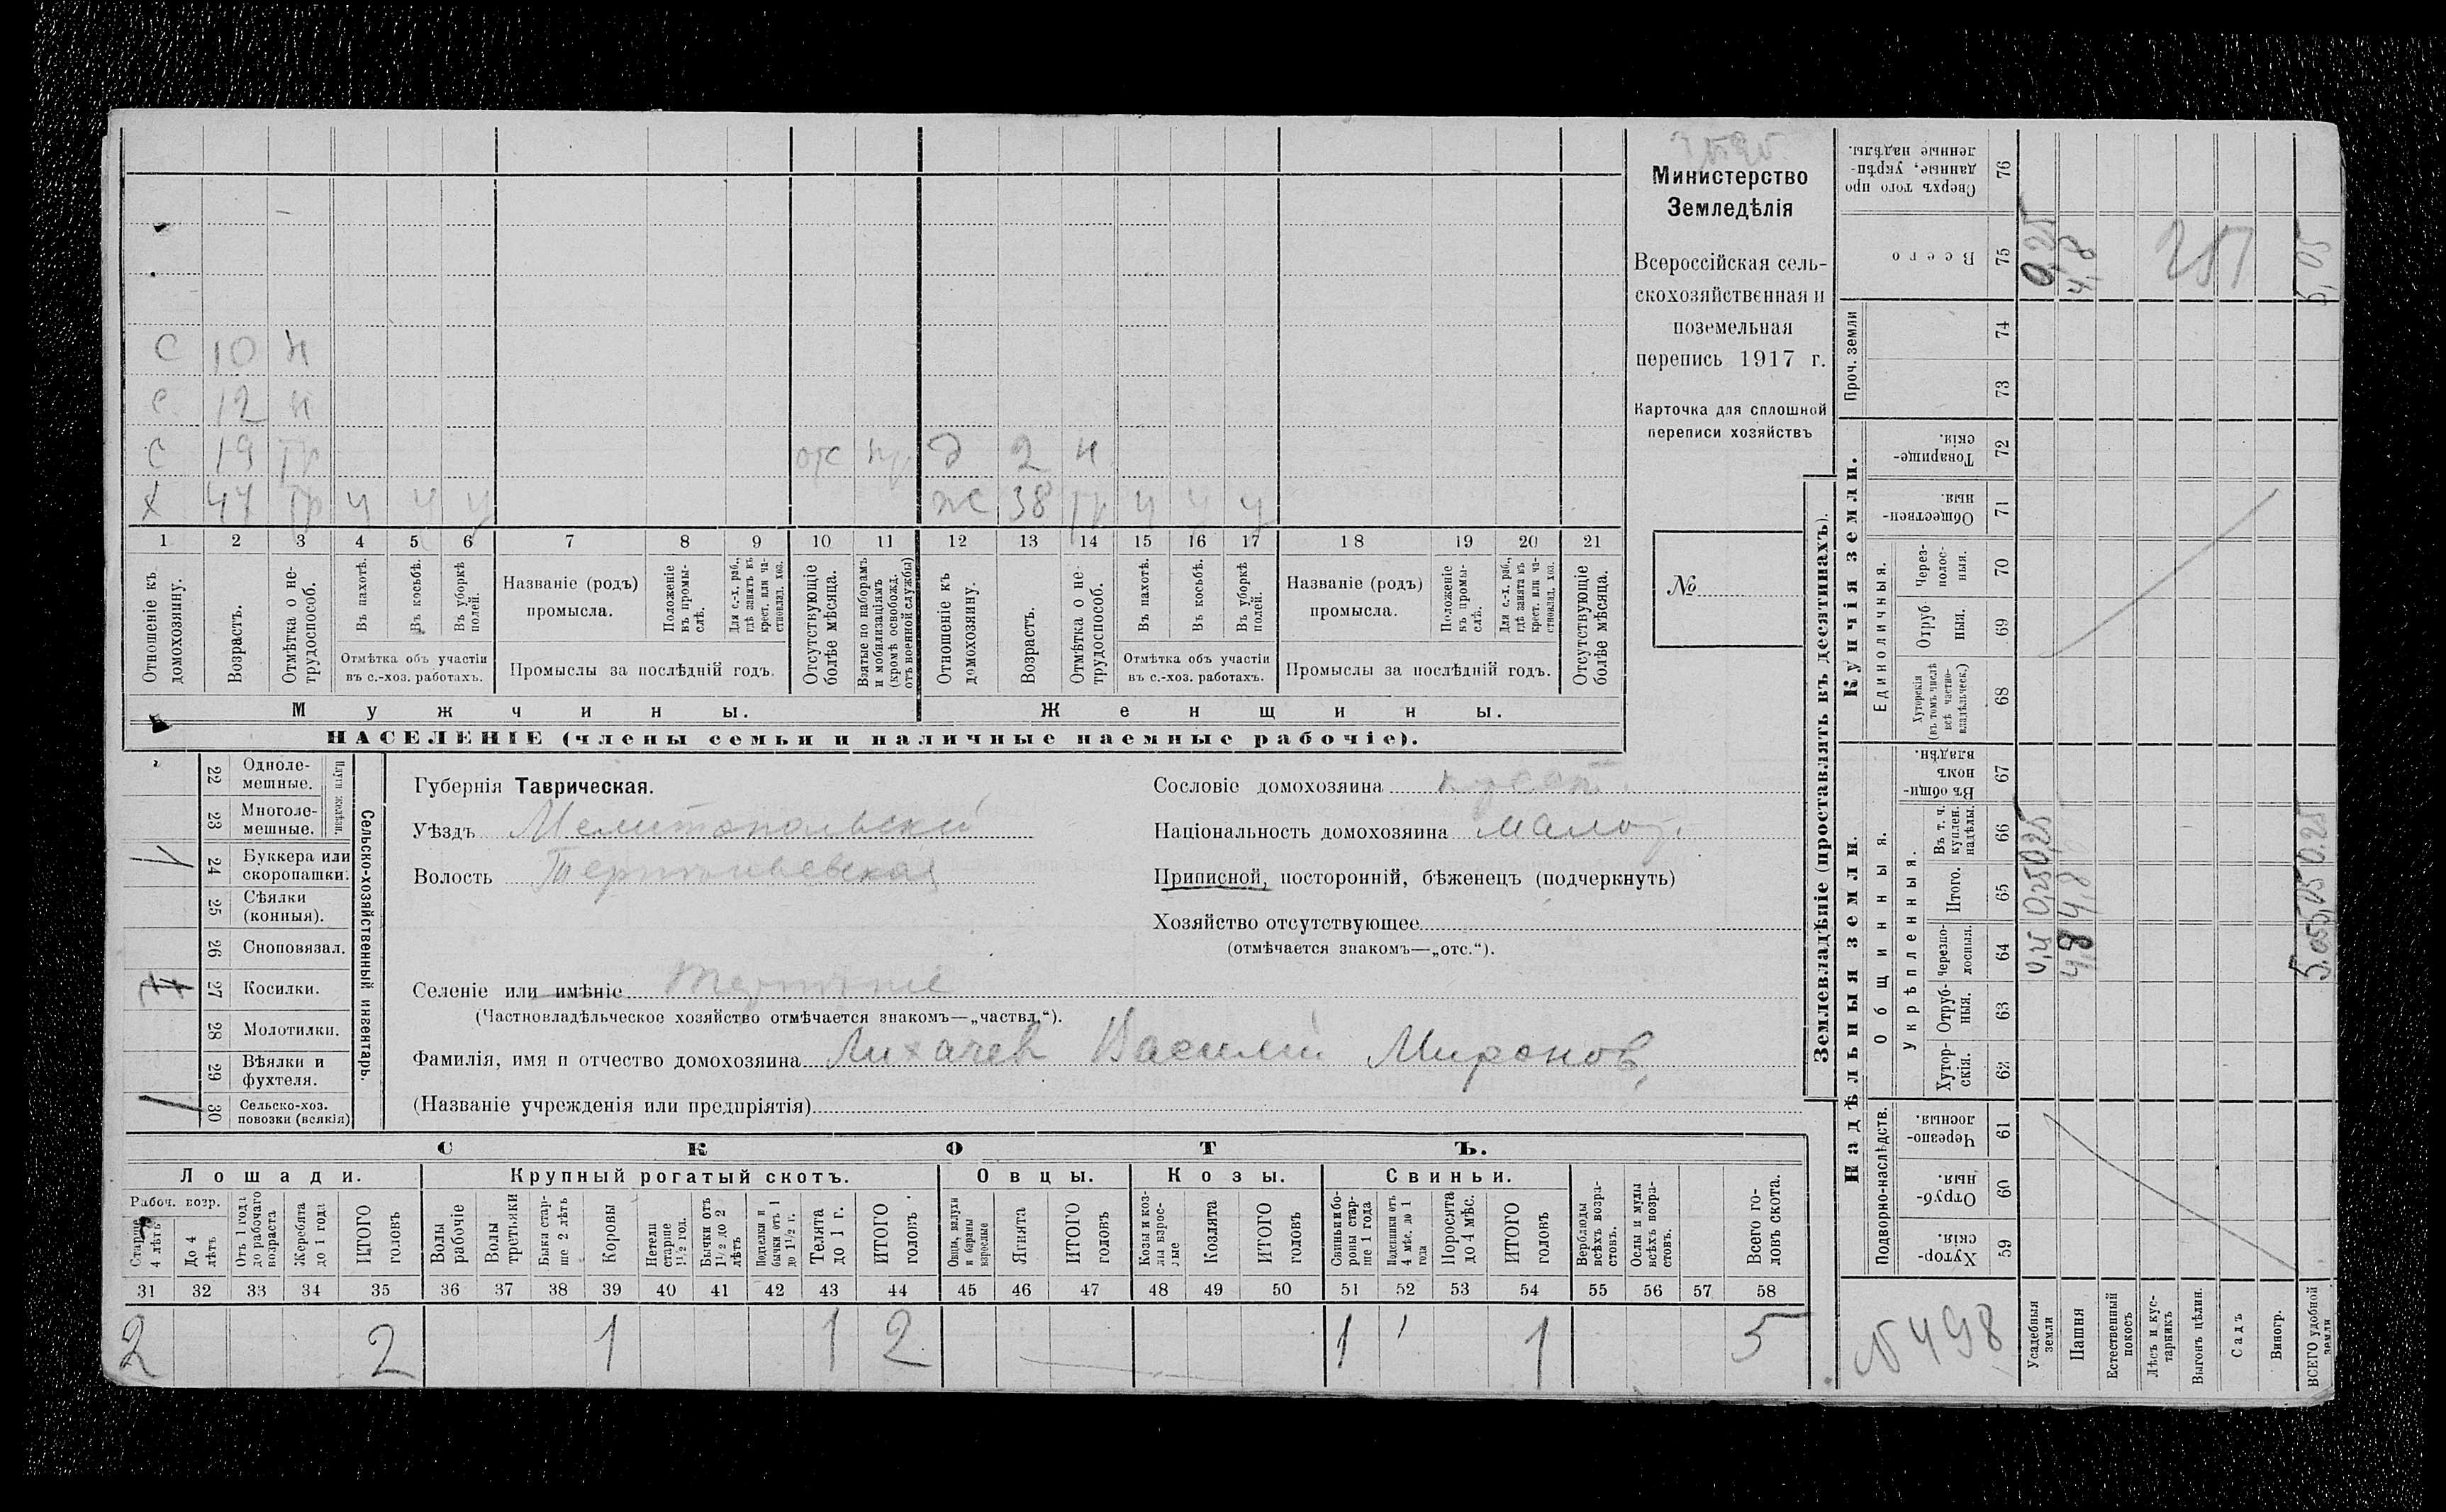 Министерство
Земледѣлія
Всероссійская сель-
скохозяйственная и
поземельная
перепись 1917 г.
Карточка для сплошной
переписи хозяйствъ
№
С 10 н
С 12 н
С 19 тр отс Д 2 н
Х 47 тр у у у ж 38 тр у у у
1 2 3 4 5 6 7 8 9 10 11 12 13 14 15 16 17 18 19 20 21
Отношеніе къ домохозяину.
Возрастъ.
Отмѣтка о не-трудоспособ.
Въ пахотѣ.
Въ косьбѣ.
Въ уборкѣ полей.
Отмѣтка объ участіи
въ с.-хоз. работахъ.
Названіе (родъ)
промысла.
Положеніе въ промы-слѣ.
Для с.-х. раб., гдѣ занятъ въ крест. или ча-стновлад. хоз.
Промыслы за послѣдній годъ.
Отсутствующіе болѣе мѣсяца.
Взятые по наборамъ и мобилизаціямъ (кромѣ освобожд. отъ военной службы)
Отношеніе къ домохозяину.
Возрастъ.
Отмѣтка о не-трудоспособ.
Въ пахотѣ.
Въ косьбѣ.
Въ уборкѣ полей.
Отмѣтка объ участіи
въ с.-хоз. работахъ.
Названіе (родъ)
промысла.
Положеніе въ промы-слѣ.
Для с.-х. раб., гдѣ занята въ крест. или ча-стновлад. хоз.
Промыслы за послѣдній годъ.
Отсутствующіе болѣе мѣсяца.
Мужчины. Женщины.
НАСЕЛЕНІЕ (члены семьи и наличные наемные рабочіе).
Сельско-хозяйственный инвентарь.
Плуги желѣзн.
22 Одноле-мешные.
23 Многоле-мешные.
24 Буккера или скоропашки.
25 Сѣялки (конныя).
26 Сноповязал.
27 Косилки.
28 Молотилки.
29 Вѣялки и фухтеля.
30 Сельско-хоз. повозки (всякія)
Губернія Таврическая.
Уѣздъ Мелитопольскій
Волость Терпѣньевская
Сословіе домохозяина крест.
Національность домохозяина малор.
Приписной, посторонній, бѣженецъ (подчеркнуть)
Хозяйство отсутствующее
(отмѣчается знакомъ—„отс.“).
Селеніе или имѣніе Терпѣніе
(Частновладѣльческое хозяйство отмѣчается знакомъ—„частвл.“).
Фамилія, имя и отчество домохозяина Лихачев Василий Миронов.
(Названіе учрежденія или предпріятія)
СКОТЪ.
Лошади. Крупный рогатый скотъ. Овцы. Козы. Свиньи.
Рабоч. возр.
Старше 4 лѣтъ
До 4 лѣтъ
Отъ 1 года до рабочаго возраста
Жеребята до 1 года
ИТОГО головъ
Волы рабочіе
Волы третьяки
Быки стар-ше 2 лѣтъ
Коровы
Нетели старше 1½ год.
Бычки отъ 1½ до 2 лѣтъ
Подтелки и бычки отъ 1 до 1½ г.
Телята до 1 г.
ИТОГО головъ
Овцы, валухи и бараны взрослые
Ягнята
ИТОГО головъ
Козы и коз-лы взрос-лые
Козлята
ИТОГО головъ
Свиньи и бо-ровы стар-ше 1 года
Подсвинки отъ 4 мѣс. до 1 года
Поросята до 4 мѣс.
ИТОГО головъ
Верблюды всѣхъ возра-стовъ.
Ослы и мулы всѣхъ возра-стовъ.
Всего го-ловъ скота.
31 32 33 34 35 36 37 38 39 40 41 42 43 44 45 46 47 48 49 50 51 52 53 54 55 56 57 58
2 2 1 1 2 1 1 5
Землевладѣніе (проставлять въ десятинахъ).
Надѣльныя земли. Купчія земли.
Подворно-наслѣдств.
Общинныя.
Укрѣпленныя.
Единоличныя.
Проч. земли
59 Хутор-скія.
60 Отруб-ныя.
61 Черезпо-лосныя.
62 Хутор-скія.
63 Отруб-ныя.
64 Черезпо-лосныя.
65 Итого.
66 Въ т. ч. куплен. надѣлы.
67 Въ общи-номъ владѣн.
68 Хуторскія (въ томъ числѣ всѣ частно-владѣльческ.)
69 Отруб-ныя.
70 Через-полос-ныя.
71 Обществен-ныя.
72 Товарище-скія.
73
74
75 Всего
76 Сверхъ того про-данные, укрѣп-ленные надѣлы.
№ 498
Усадебныя земли 0,25 0,25 0,25 0,25
Пашня 4,8 4,8 4,8
Естественный покосъ
Лѣсъ и кус-тарникъ
Выгонъ цѣлин.
Садъ
Виногр.
ВСЕГО удобной земли 5,05 5,05 0.25 5,05